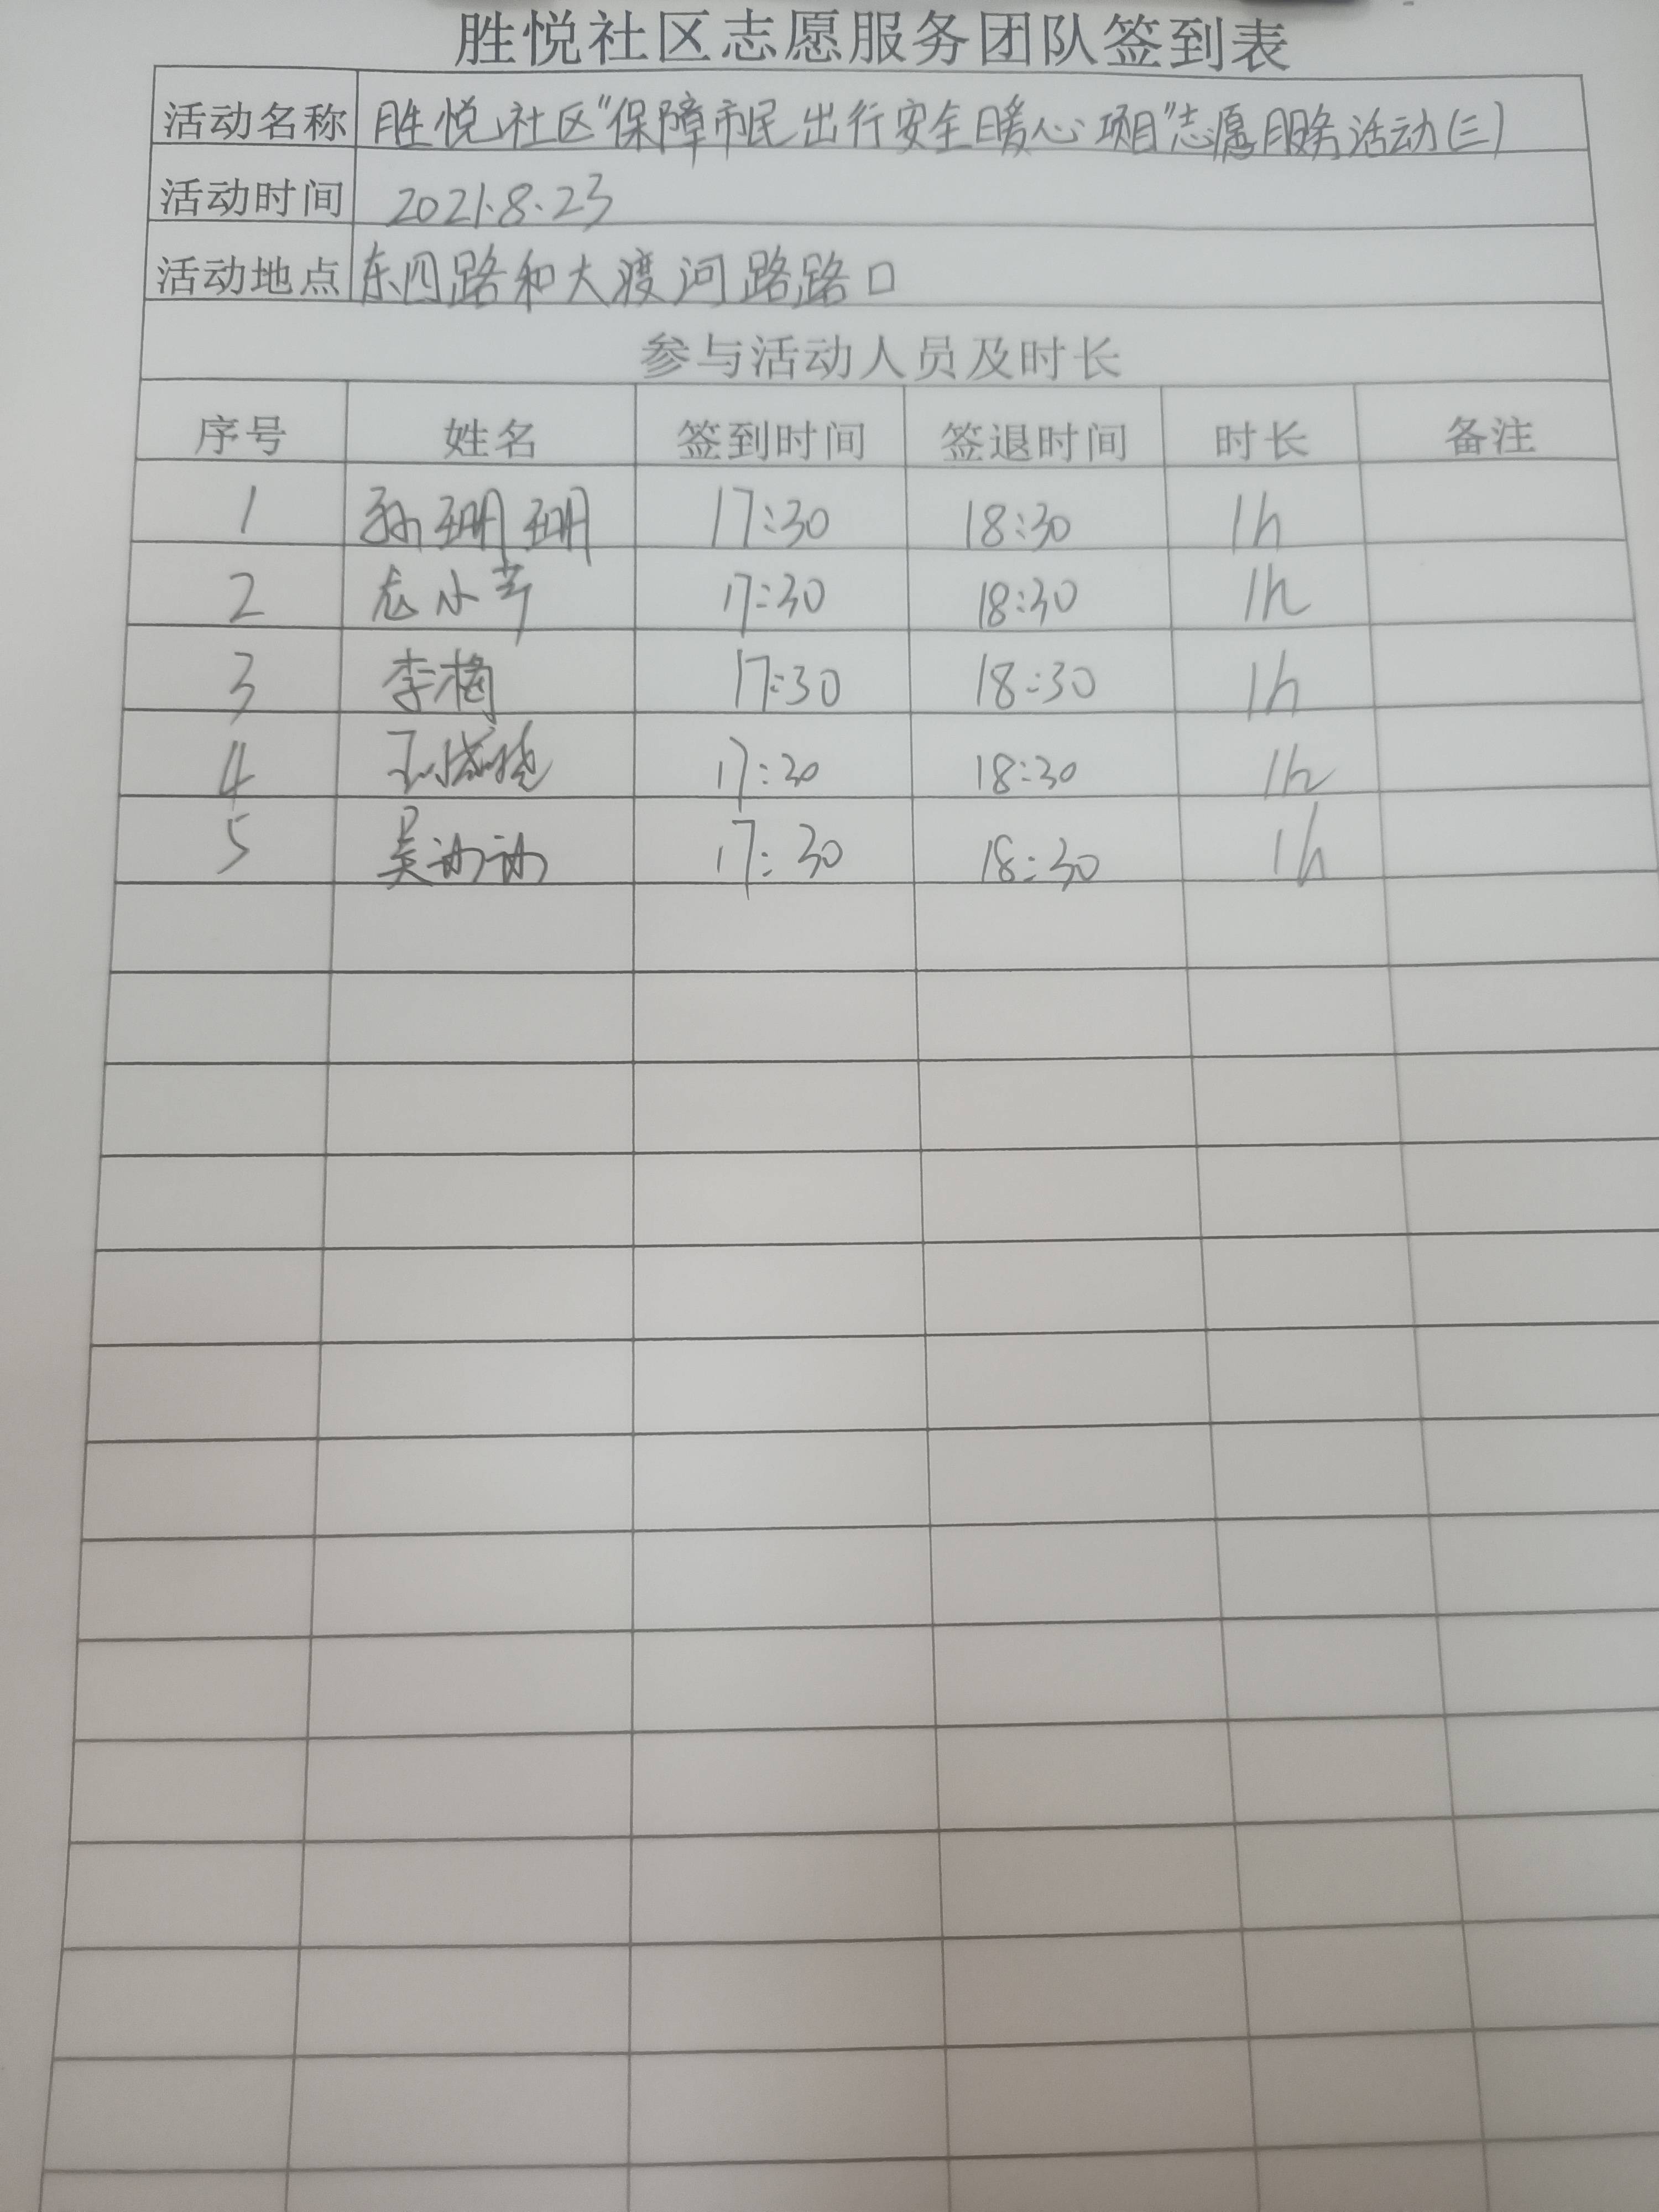 胜悦社区志愿服务团队签到表
活动名称 胜悦社区"保障市民出行安全暖心项目"志愿服务活动(三)
活动时间 2021.8.23
活动地点 东四路和大渡河路路口
参与活动人员及时长
序号 姓名 签到时间 签退时间 时长 备注
1 孙珊珊 17:30 18:30 1h
2 小 17:30 18:30 1h
3 李梅 17:30 18:30 1h
4 17:30 18:30 1h
5 吴 17:30 18:30 1h